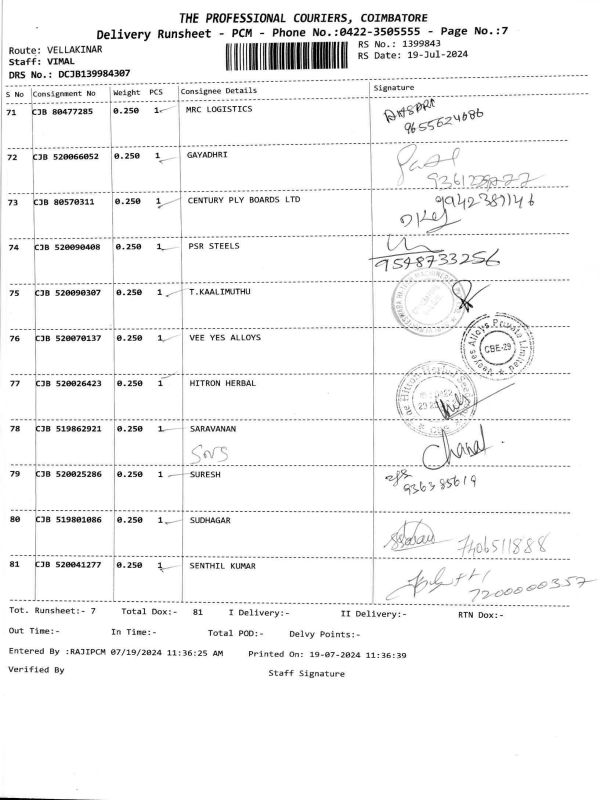 THE PROFESSIONAL COURIERS, COIMBATORE
Delivery Runsheet - PCM - Phone No.:0422-3505555 - Page No.:7
Route: VELLAKINAR
RS No.: 1399843
Staff: VIMAL
RS Date: 19-Jul-2024
DRS No.: DCJB139984307
S No Consignment No Weight PCS Consignee Details Signature
71 CJB 80477285 0.250 1 MRC LOGISTICS
9655624686
72 CJB 520066052 0.250 1 GAYADHRI
73 CJB 80570311 0.250 1 CENTURY PLY BOARDS LTD
74 CJB 520090408 0.250 1 PSR STEELS
9548733256
75 CJB 520090307 0.250 1 T.KAALIMUTHU
76 CJB 520070137 0.250 1 VEE YES ALLOYS
Veeyes Alloys Private Limited
CBE-29
77 CJB 520026423 0.250 1 HITRON HERBAL
78 CJB 519862921 0.250 1 SARAVANAN
SNS
79 CJB 520025286 0.250 1 SURESH
936385619
80 CJB 519801086 0.250 1 SUDHAGAR
7406511888
81 CJB 520041277 0.250 1 SENTHIL KUMAR
7200000357
Tot. Runsheet:- 7 Total Dox:- 81 I Delivery:- II Delivery:- RTN Dox:-
Out Time:- In Time:- Total POD:- Delvy Points:-
Entered By :RAJIPCM 07/19/2024 11:36:25 AM Printed On: 19-07-2024 11:36:39
Verified By Staff Signature